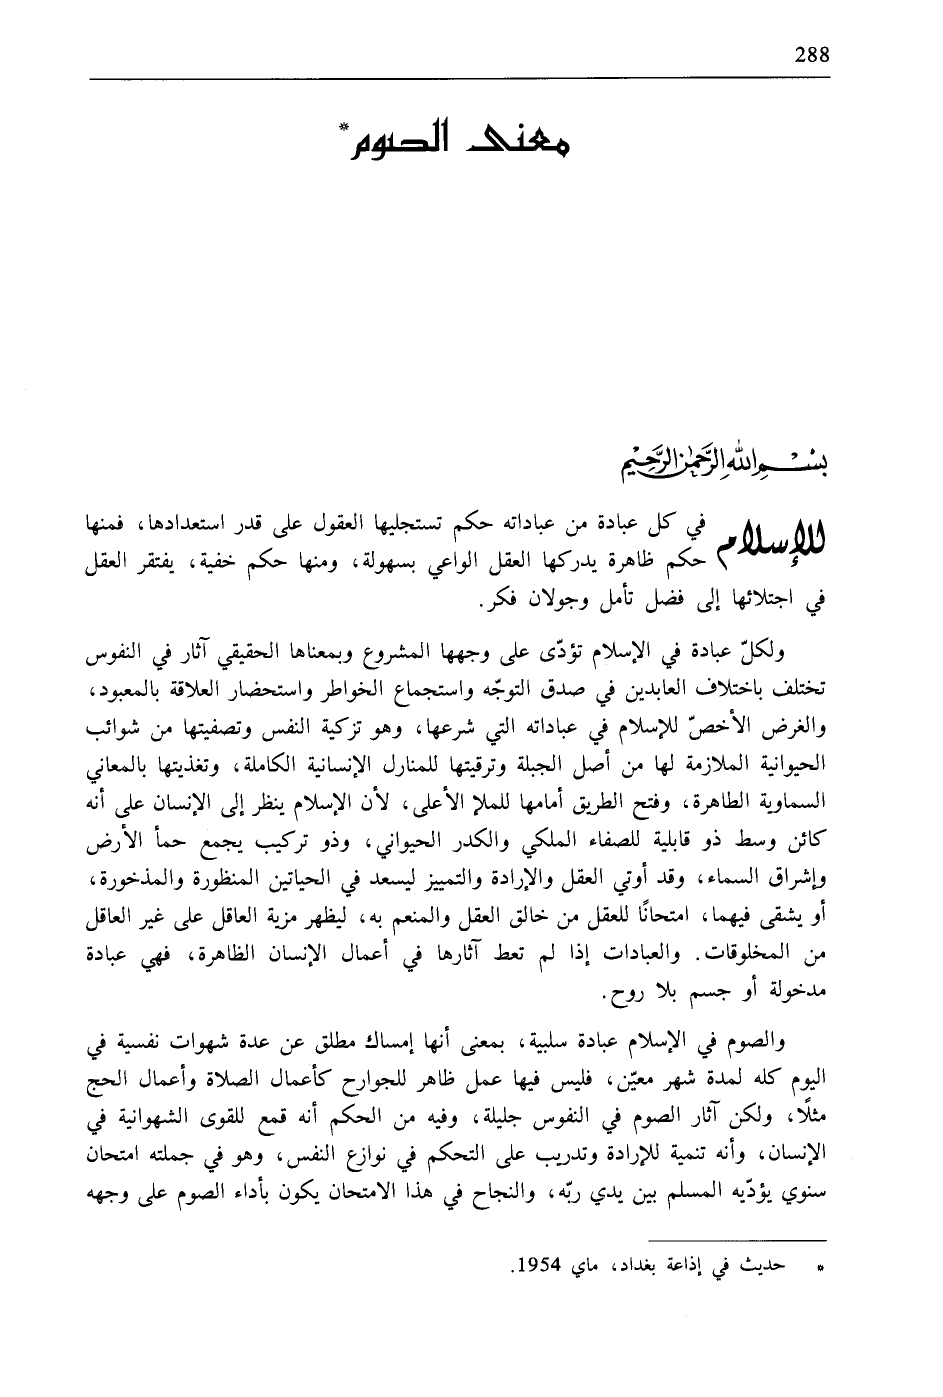 288
معنى الصوم*
بسم الله الرحمن الرحيم
للإسلام في كل عبادة من عباداته حكم تستجليها العقول على قدر استعدادها، فمنها
حكم ظاهرة يدركها العقل الواعي بسهولة، ومنها حكم خفية، يفتقر العقل
في اجتلائها إلى فضل تأمل وجولان فكر.
ولكلّ عبادة في الإسلام تؤدّى على وجهها المشروع وبمعناها الحقيقي آثار في النفوس
تختلف باختلاف العابدين في صدق التوجّه واستجماع الخواطر واستحضار العلاقة بالمعبود،
والغرض الأخصّ للإسلام في عباداته التي شرعها، وهو تزكية النفس وتصفيتها من شوائب
الحيوانية الملازمة لها من أصل الجبلة وترقيتها للمنازل الإنسانية الكاملة، وتغذيتها بالمعاني
السماوية الطاهرة، وفتح الطريق أمامها للملإ الأعلى، لأن الإسلام ينظر إلى الإنسان على أنه
كائن وسط ذو قابلية للصفاء الملكي والكدر الحيواني، وذو تركيب يجمع حمأ الأرض
وإشراق السماء، وقد أوتي العقل والإرادة والتمييز ليسعد في الحياتين المنظورة والمذخورة،
أو يشقى فيهما، امتحانًا للعقل من خالق العقل والمنعم به، ليظهر مزية العاقل على غير العاقل
من المخلوقات. والعبادات إذا لم تعط آثارها في أعمال الإنسان الظاهرة، فهي عبادة
مدخولة أو جسم بلا روح.
والصوم في الإسلام عبادة سلبية، بمعنى أنها إمساك مطلق عن عدة شهوات نفسية في
اليوم كله لمدة شهر معيّن، فليس فيها عمل ظاهر للجوارح كأعمال الصلاة وأعمال الحج
مثلًا، ولكن آثار الصوم في النفوس جليلة، وفيه من الحكم أنه قمع للقوى الشهوانية في
الإنسان، وأنه تنمية للإرادة وتدريب على التحكم في نوازع النفس، وهو في جملته امتحان
سنوي يؤدّيه المسلم بين يدي ربّه، والنجاح في هذا الامتحان يكون بأداء الصوم على وجهه
* حديث في إذاعة بغداد، ماي 1954.